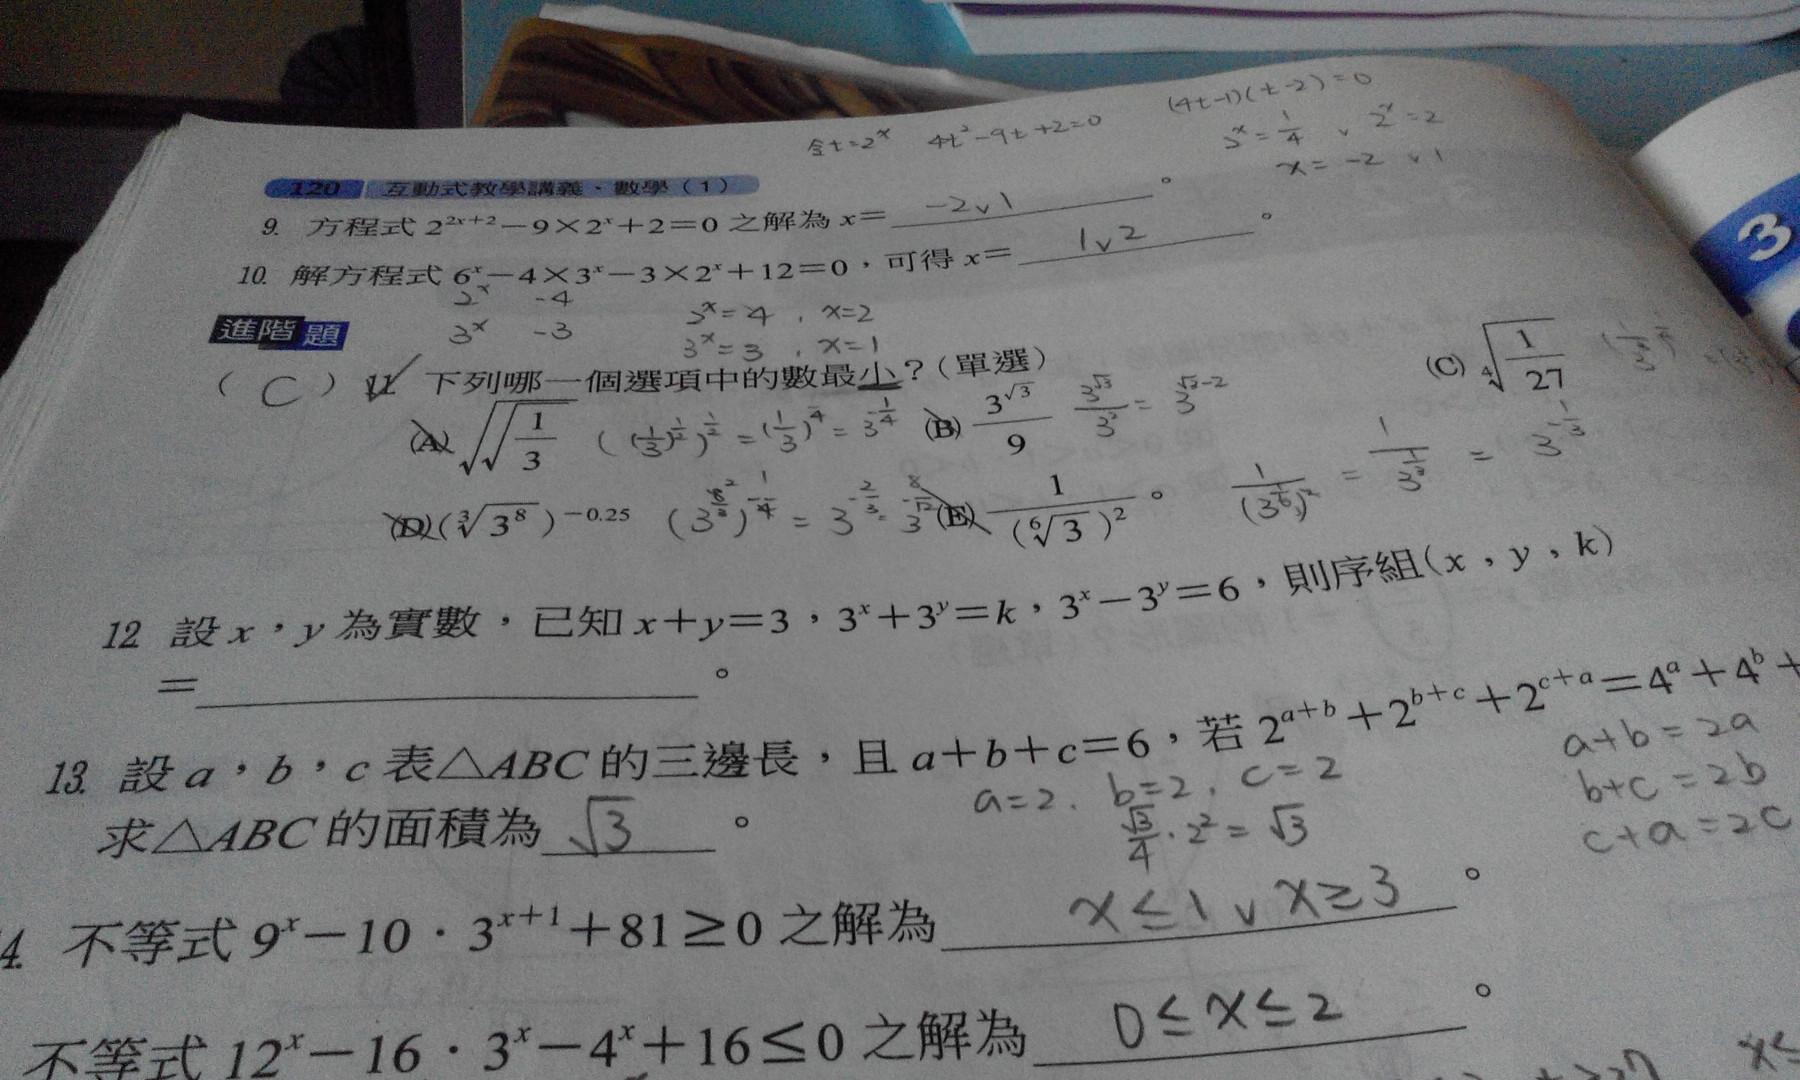 令t=2^x 4t²-9t+2=0 (4t-1)(t-2)=0
2^x=1/4 ∨ 2^x=2
x=-2 ∨ 1
120 互動式教學講義、數學（1）
9. 方程式 2^{2x+2}-9×2^x+2=0 之解為 x= -2∨1 。
10. 解方程式 6^x-4×3^x-3×2^x+12=0，可得 x= 1∨2 。
2^x -4
3^x -3
2^x=4 , x=2
3^x=3 , x=1
進階題
（ C ）11. 下列哪一個選項中的數最小？（單選）
(A) √√(1/3) ((1/3)^{1/2})^{1/2} = (1/3)^{1/4} = 3^{-1/4} (B) 3^{√3}/9 3^{√3}/3² = 3^{√3-2} (C) ⁴√(1/27)
(D) (³√(3^8))^{-0.25} = 3^{-2/3} (E) 1/(⁶√3)² 。 1/(3^{1/6})² = 1/3^{1/3} = 3^{-1/3}
12. 設 x，y 為實數，已知 x+y=3，3^x+3^y=k，3^x-3^y=6，則序組(x，y，k)
= 。
13. 設 a，b，c 表△ABC 的三邊長，且 a+b+c=6，若 2^{a+b}+2^{b+c}+2^{c+a}=4^a+4^b+
a=2, b=2, c=2
a+b=2a
b+c=2b
c+a=2c
求△ABC 的面積為 √3 。
√3/4 · 2² = √3
4. 不等式 9^x-10·3^{x+1}+81≥0 之解為 x≤1 ∨ x≥3 。
不等式 12^x-16·3^x-4^x+16≤0 之解為 0≤x≤2 。
x≤
3